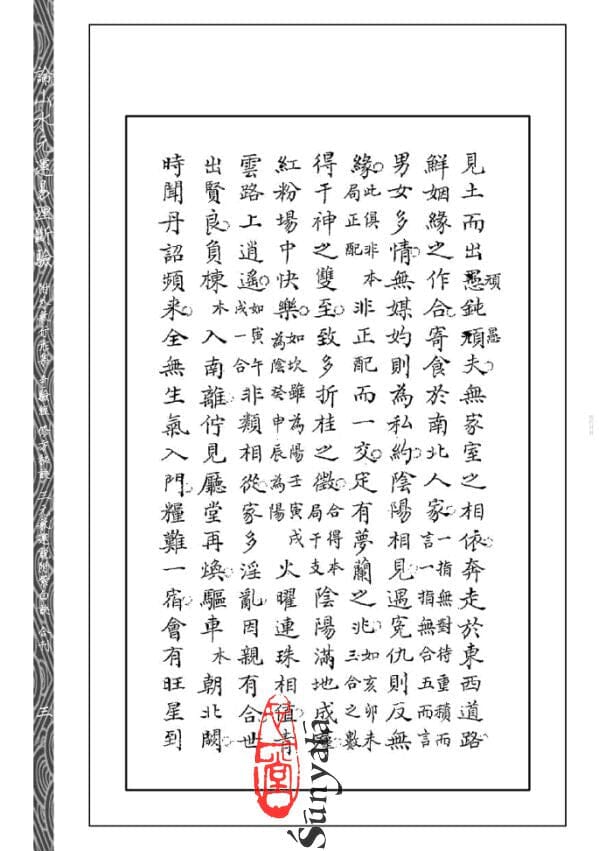 見土而出愚鈍頑夫無家室之相依奔走於東西道路
頑 愚
鮮姻緣之作合寄食於南北人家一指無對待重積而言一指無合五而言
男女多情無媒妁則為私約陰陽相見遇冤仇則反無
緣此俱非本局正配非正配而一交定有夢蘭之兆如亥卯未三合之數
得干神之雙至致多折桂之徵合得本局干支陰陽滿地成羣
紅粉場中快樂如坎雖為陽壬寅戌為陰癸申辰為陽火曜連珠相值青
雲路上逍遙如寅午戌一合非類相從家多淫亂因親有合世
出賢良負棟木入南離佇見廳堂再煥驅車木朝北闕
時聞丹詔頻來全無生氣入門糧難一宿會有旺星到
三
心一堂
Śūnyatā